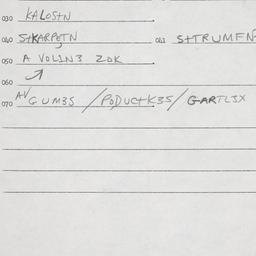 030 KALOStN
040 StKARPETN 041 StTRUMFN
050 A VOLIN3 ZOK
060
070 AV GUM35 / PODUCtK35 / GARTL3X